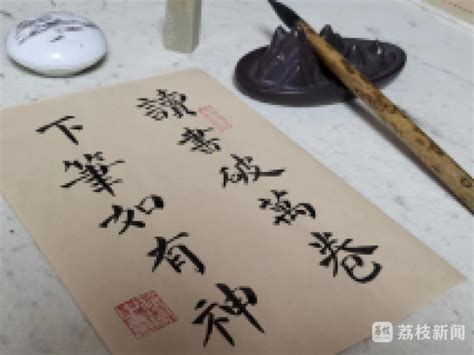 讀書破萬卷
下筆如有神
荔枝新闻